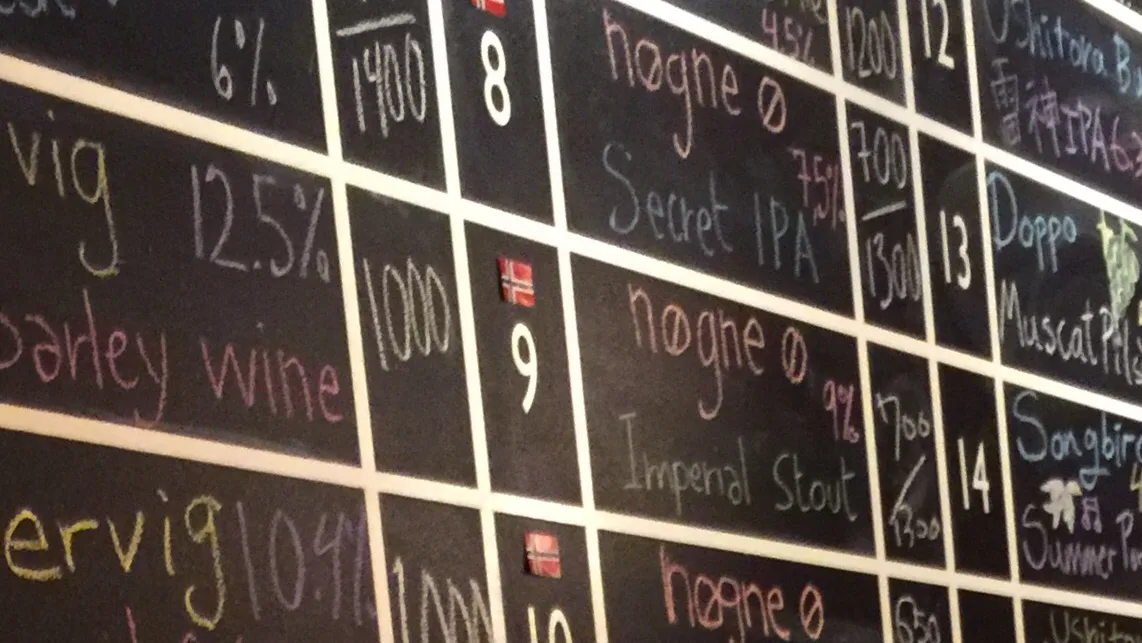 6%
1400
vig 12.5%
barley wine
1000
ervig 10.4%
8
4.5%
1200
nøgne Ø
7.5%
Secret IPA
700
1300
9
nøgne Ø
9%
Imperial Stout
700
/
1300
10
nøgne Ø
650
12
Ushitora
雷神IPA
13
Doppo
Muscat Pils
14
Songbird
Summer